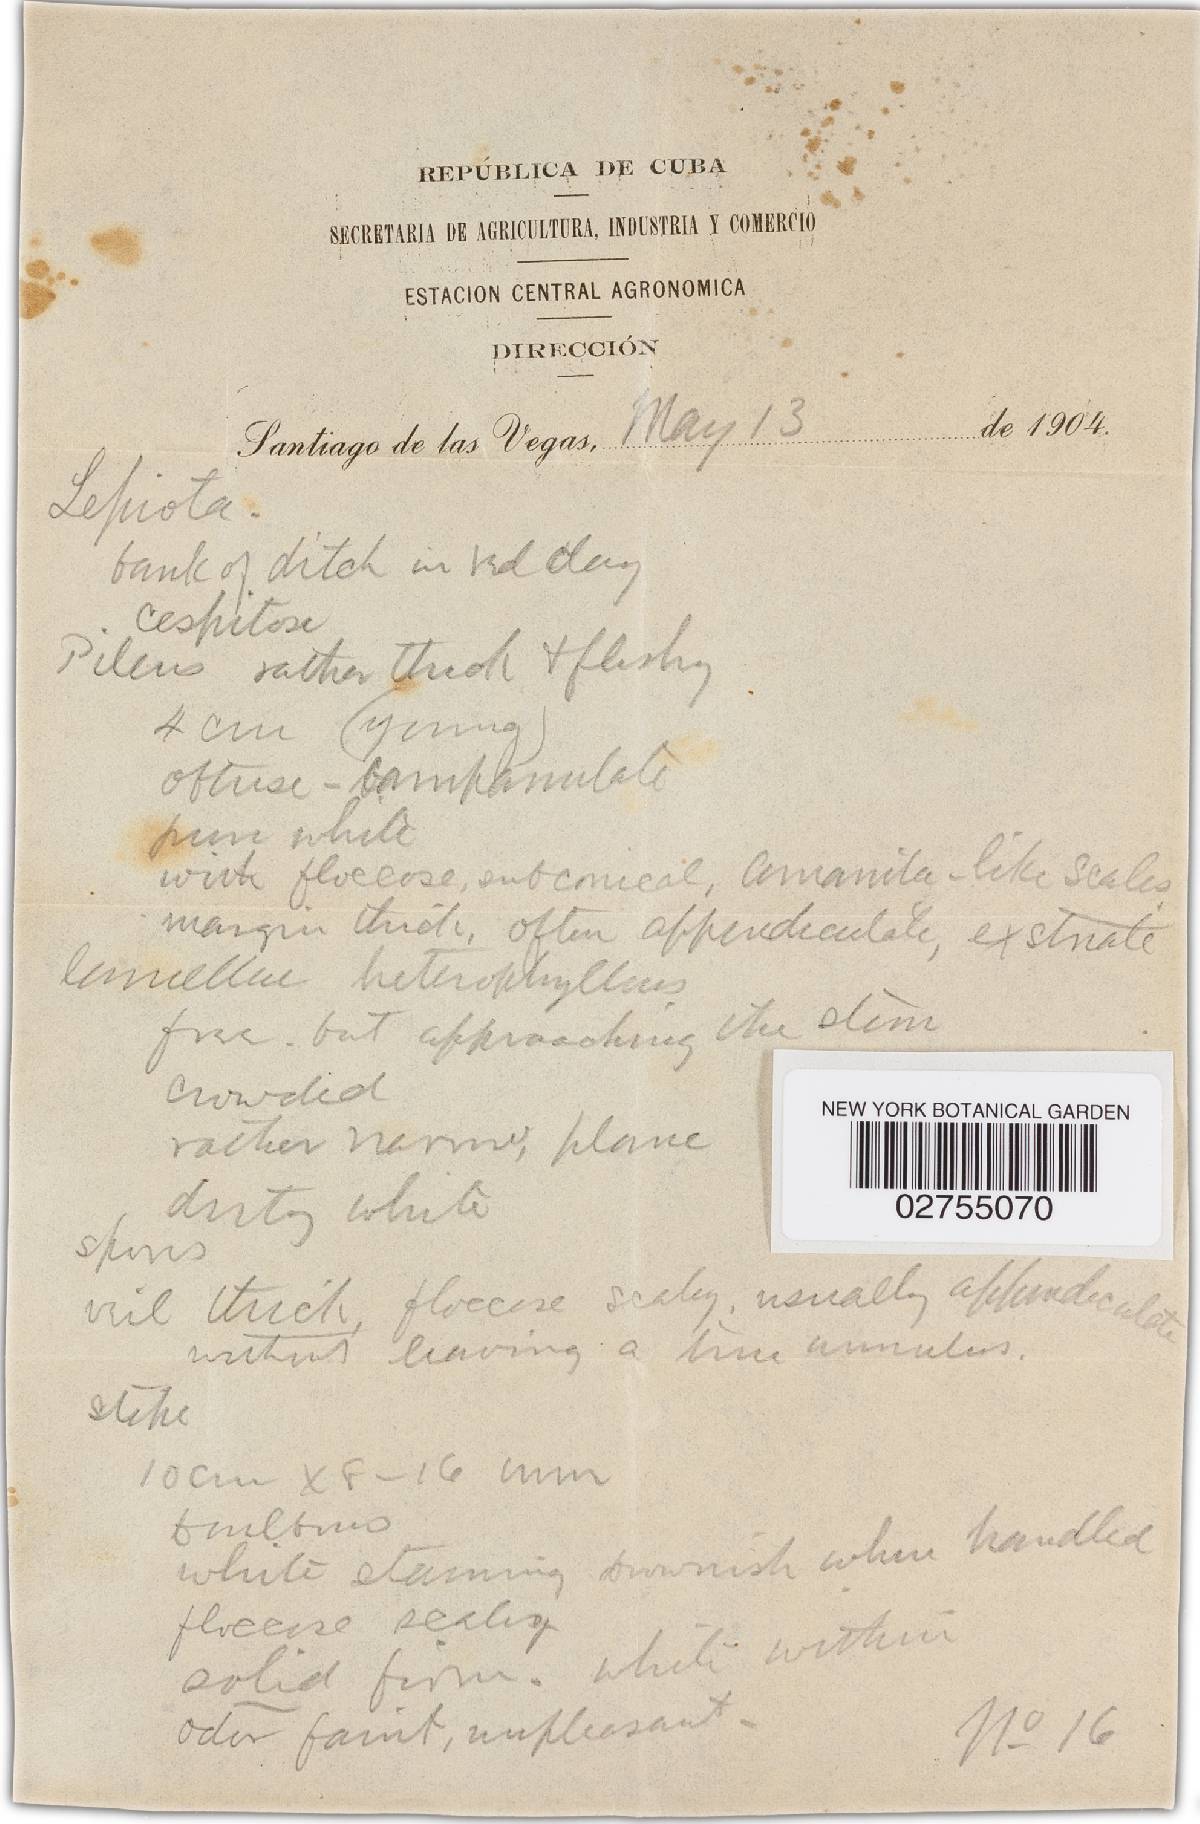 REPÚBLICA DE CUBA
SECRETARIA DE AGRICULTURA, INDUSTRIA Y COMERCIO
ESTACION CENTRAL AGRONOMICA
DIRECCIÓN
Santiago de las Vegas, May 13 de 1904.
Lepiota.
bank of ditch in red clay
cespitose
Pileus rather thick & fleshy
4 cm (young)
obtuse - campanulate
pure white
with floccose, subconical, Amanita-like scales
margin thick, often appendiculate, exstriate
lamellae heterophyllous
free. but approaching the stem
crowded
rather narrow, plane
dirty white
spores
veil thick, floccose scaly, usually appendiculate
without leaving a true annulus.
stipe
10 cm x 8-16 mm
bulbous
white staining brownish when handled
floccose scaly
solid firm. white within
odor faint, unpleasant-
No 16
NEW YORK BOTANICAL GARDEN
02755070